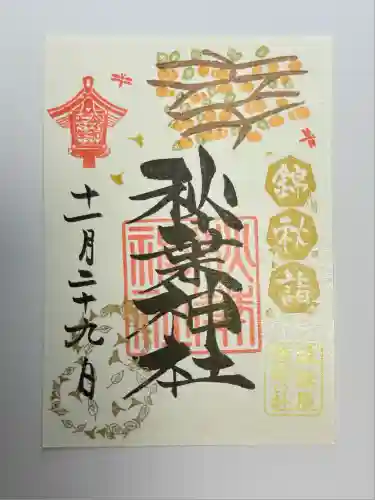 錦秋詣
秋葉神社
十一月二十九日